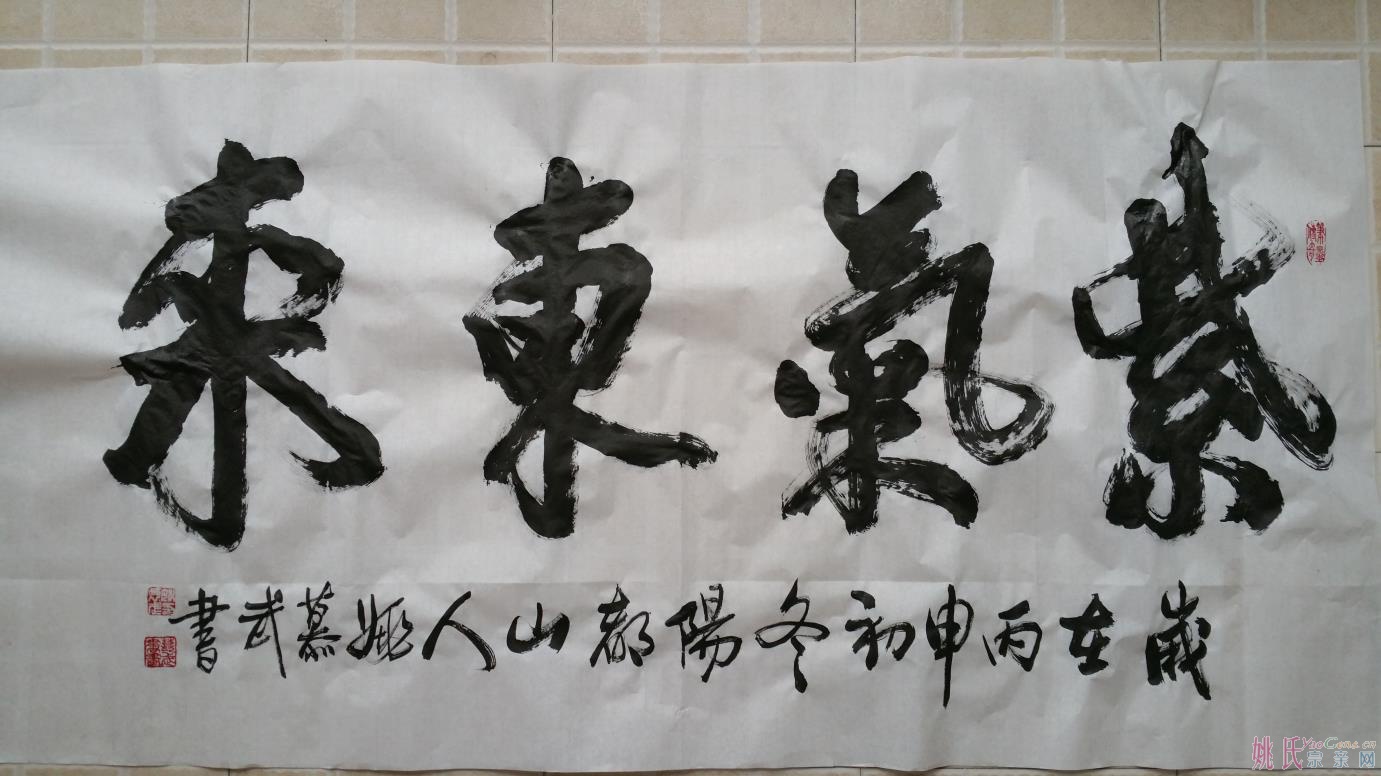 紫氣東來
歲在丙申初冬陽都山人姚慕武書
姚氏宗亲网
YaoGens.cn